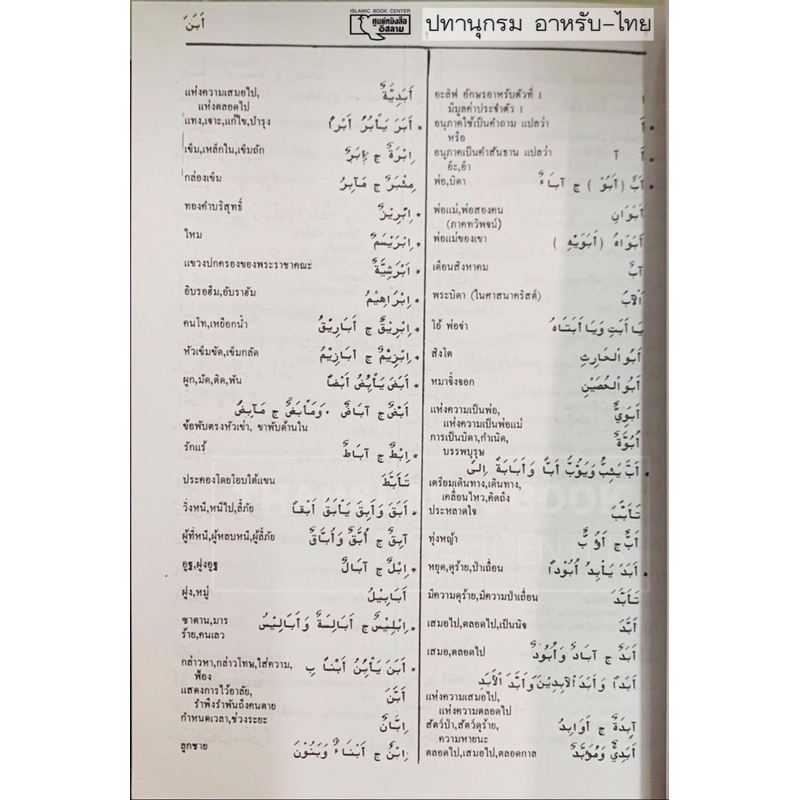 ISLAMIC BOOK CENTER
ศูนย์หนังสือ
อิสลาม
ปทานุกรม อาหรับ-ไทย
أَبَنَ
อะลิฟ อักษรอาหรับตัวที่ 1
มีมูลค่าประจำตัว 1
أَ อนุภาคใช้เป็นคำถาม แปลว่า
หรือ
أَ آ อนุภาคเป็นคำสันธาน แปลว่า
อ๊ะ,อ้า
أَبٌ (أَبُوْ) ج آبَاءٌ พ่อ,บิดา
أَبَوَانِ พ่อแม่,พ่อสองคน
(ภาคทวิพจน์)
أَبَوَاهُ (أَبَوَيْهِ) พ่อแม่ของเขา
آبٌ เดือนสิงหาคม
اَلْأَبُ พระบิดา (ในศาสนาคริสต์)
يَا أَبَتِ وَيَا أَبَتَاهُ โอ้ พ่อจ๋า
أَبُو الْحَارِثِ สิงโต
أَبُو الْحُصَيْنِ หมาจิ้งจอก
أَبَوِيٌّ แห่งความเป็นพ่อ,
แห่งความเป็นพ่อแม่
أُبُوَّةٌ การเป็นบิดา,กำเนิด,
บรรพบุรุษ
أَبَّ يَئِبُّ وَيَؤُبُّ أَبًّا وَأَبَابَةً إِلَى
เตรียมเดินทาง,เดินทาง,
เคลื่อนไหว,คิดถึง
ประหลาดใจ
أَبٌّ ج أَؤُبٌّ ทุ่งหญ้า
أَبَدَ يَأْبِدُ أُبُوْدًا หยุด,ดุร้าย,ป่าเถื่อน
تَأَبَّدَ มีความดุร้าย,มีความป่าเถื่อน
أَبَّدَ เสมอไป,ตลอดไป,เป็นนิจ
أَبَدٌ ج آبَادٌ وَأُبُوْدٌ เสมอ,ตลอดไป
أَبَدًا وَأَبَدَ الْآبِدِيْنَ وَأَبَدَ الْأَبَدِ
แห่งความเสมอไป,
แห่งความตลอดไป
آبِدَةٌ ج أَوَابِدُ สัตว์ป่า,สัตว์ดุร้าย,
ความหายนะ
أَبَدِيٌّ وَمُؤَبَّدٌ ตลอดไป,เสมอไป,ตลอดกาล
أَبَدِيَّةٌ แห่งความเสมอไป,
แห่งตลอดไป
أَبَرَ يَأْبُرُ أَبْرًا แทง,เจาะ,แก้ไข,บำรุง
إِبْرَةٌ ج إِبَرٌ เข็ม,เหล็กใน,เข็มถัก
مِئْبَرٌ ج مَآبِرُ กล่องเข็ม
إِبْرِيْزٌ ทองคำบริสุทธิ์
إِبْرَيْسَمٌ ไหม
أَبْرَشِيَّةٌ แขวงปกครองของพระราชาคณะ
إِبْرَاهِيْمُ อิบรอฮีม,อับราฮัม
إِبْرِيْقٌ ج أَبَارِيْقُ คนโท,เหยือกน้ำ
إِبْزِيْمٌ ج أَبَازِيْمُ หัวเข็มขัด,เข็มกลัด
أَبَضَ يَأْبِضُ أَبْضًا ผูก,มัด,ติด,พัน
أُبْضٌ ج آبَاضٌ .وَمَأْبِضٌ ج مَآبِضُ
ข้อพับตรงหัวเข่า, ขาพับด้านใน
إِبْطٌ ج آبَاطٌ รักแร้
تَأَبَّطَ ประคองโดยโอบใต้แขน
أَبَقَ وَأَبِقَ يَأْبَقُ أَبْقًا วิ่งหนี,หนีไป,ลี้ภัย
آبِقٌ ج أُبَّقٌ وَأُبَّاقٌ ผู้ที่หนี,ผู้หลบหนี,ผู้ลี้ภัย
إِبْلٌ ج آبَالٌ อูฐ,ฝูงอูฐ
أَبَابِيْلُ ฝูง,หมู่
إِبْلِيْسٌ ج أَبَالِسَةٌ وَأَبَالِيْسُ ซาตาน,มาร
ร้าย,คนเลว
أَبَنَ يَأْبُنُ أَبْنًا بِ กล่าวหา,กล่าวโทษ,ใส่ความ,
ฟ้อง
أَبَّنَ แสดงการไว้อาลัย,
รำพึงรำพันถึงคนตาย
إِبَّانٌ กำหนดเวลา,ช่วงระยะ
إِبْنٌ ج أَبْنَاءٌ وَبَنُوْنَ ลูกชาย